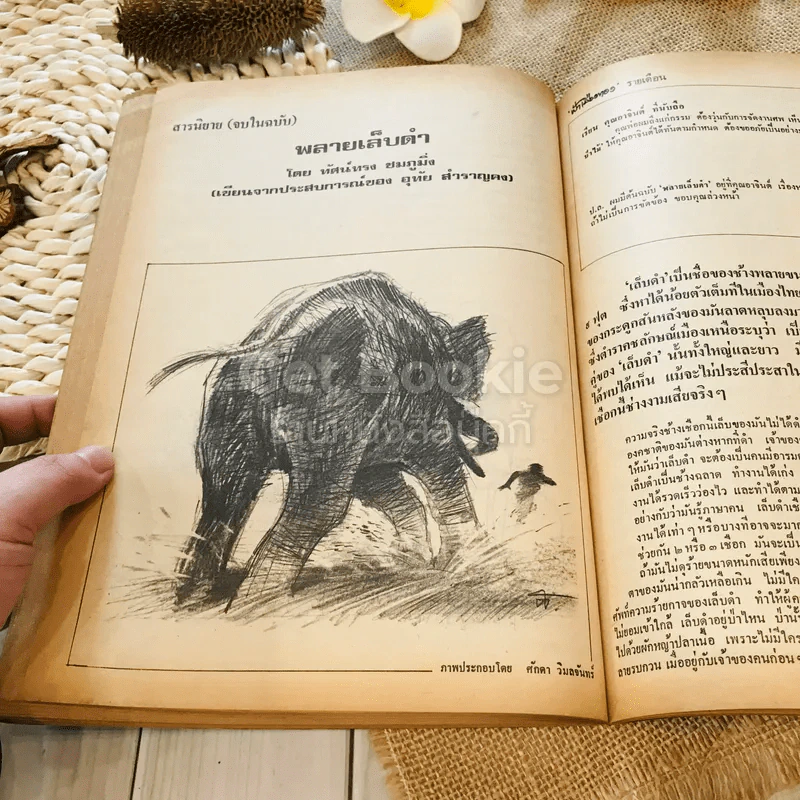 สารนิยาย (จบในฉบับ)
พลายเล็บดำ
โดย ทัศน์ทรง ชมภูมิ่ง
(เขียนจากประสบการณ์ของ อุทัย สำราญดง)
Get Bookie
ภาพประกอบโดย ศักดา วิมลจันทร์
รายเดือน
เรียน คุณอาจินต์ ที่นับถือ
คุณพ่อผมถึงแก่กรรม ต้องวุ่นกับการจัดงานศพ
ให้คุณอาจินต์ได้ทันตามกำหนด ต้องขออภัยเป็นอย่าง
ป.ล. ผมมีต้นฉบับ 'พลายเล็บดำ' อยู่ที่คุณอาจินต์ เรื่อง
ถ้าไม่เป็นการขัดข้อง ขอบคุณล่วงหน้า
'เล็บดำ' เป็นชื่อของช้างพลายขน
๘ ฟุต ซึ่งหาได้น้อยตัวเต็มทีในเมืองไทย
ของกระดูกสันหลังของมันลาดหลุบลงมา
ซึ่งตำราคชลักษณ์เมืองเหนือระบุว่า เป็
คู่ของ 'เล็บดำ' นั้นทั้งใหญ่และยาว มี
ได้พบได้เห็น แม้จะไม่ประสีประสาใน
เชือกนี้ช่างงามเสียจริงๆ
ความจริงช้างเชือกนี้เล็บของมันไม่ได้ดำ
องคชาติของมันต่างหากที่ดำ เจ้าของ
ให้มันว่าเล็บดำ จะต้องเป็นคนมีอารม
เล็บดำเป็นช้างฉลาด ทำงานได้เก่ง
งานได้รวดเร็วว่องไว และทำได้ตาม
อย่างกับว่ามันรู้ภาษาคน เล็บดำเชื
งานได้เท่าๆ หรือบางทีอาจจะมาก
ช่วยกัน ๒ หรือ ๓ เชือก มันจะเป็น
ถ้ามันไม่ดุร้ายขนาดหนักเสียเพียง
ตาของมันน่ากลัวเหลือเกิน ไม่มีใค
ศัพท์ความร้ายกาจของเล็บดำ ทำให้ผู้ค
ไม่ยอมเข้าใกล้ เล็บดำอยู่ป่าไหน ป่านั้
ไปด้วยผักหญ้าปลาเนื้อ เพราะไม่มีใคร
ลายรบกวน เมื่ออยู่กับเจ้าของคนก่อนๆ